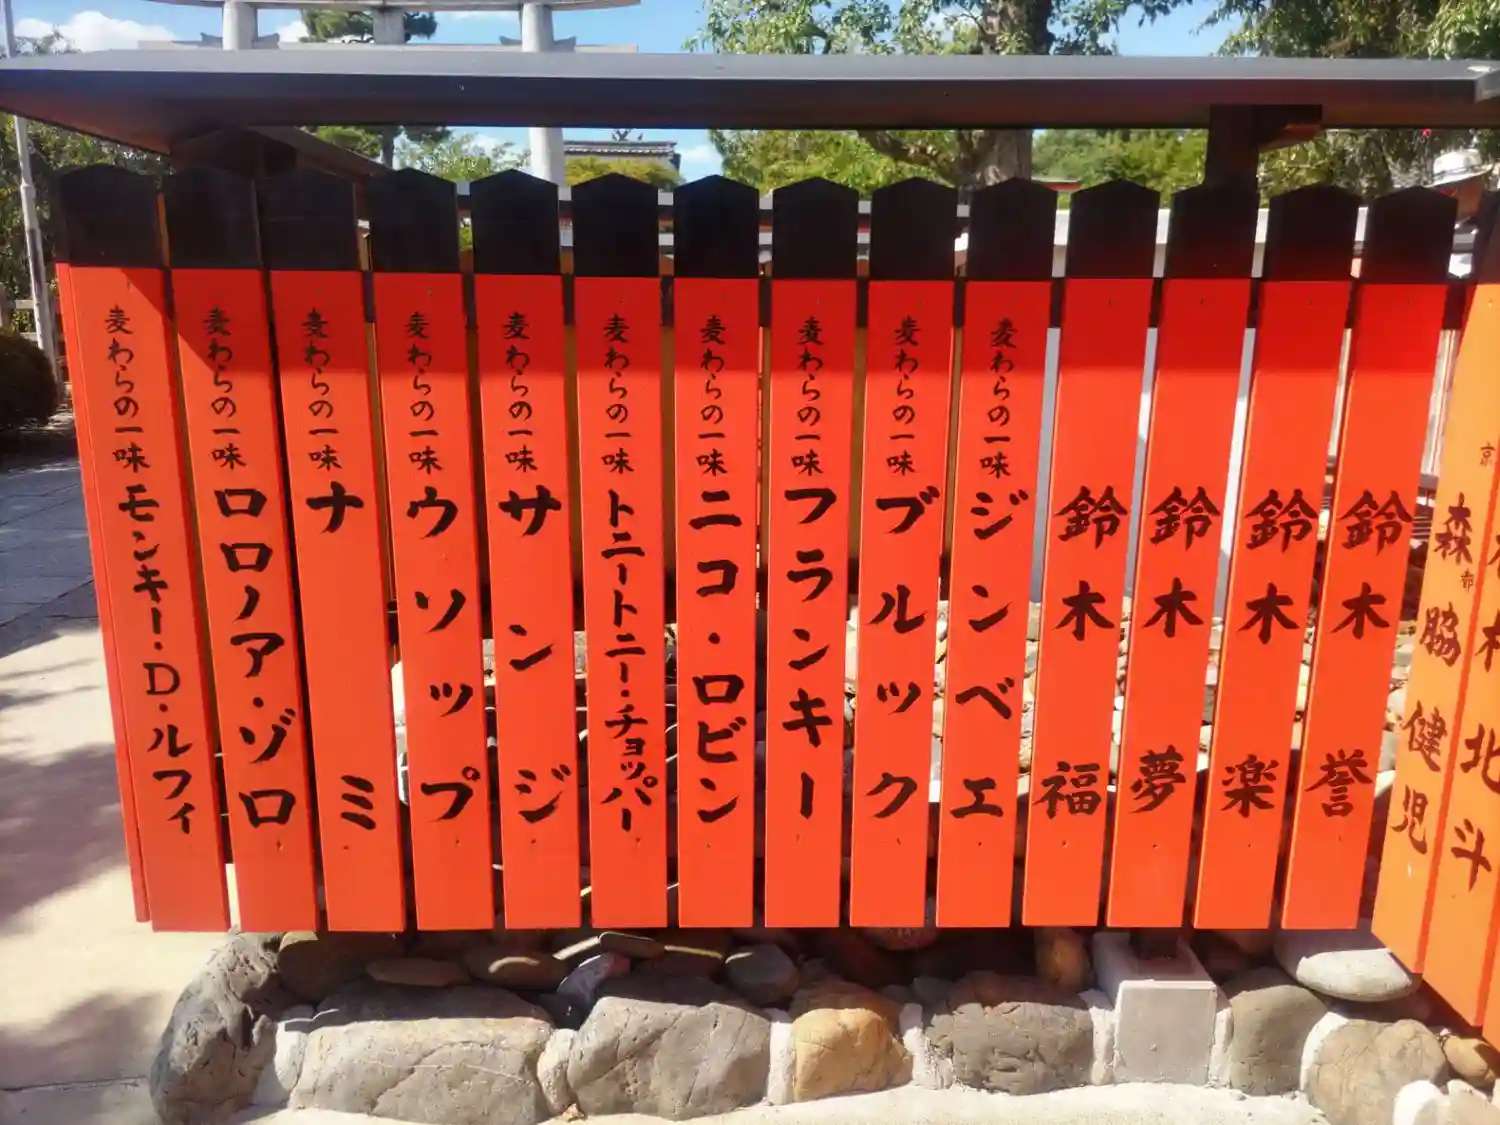 麦わらの一味 モンキー・D・ルフィ
麦わらの一味 ロロノア・ゾロ
麦わらの一味 ナミ
麦わらの一味 ウソップ
麦わらの一味 サンジ
麦わらの一味 トニートニー・チョッパー
麦わらの一味 ニコ・ロビン
麦わらの一味 フランキー
麦わらの一味 ブルック
麦わらの一味 ジンベエ
鈴木 福
鈴木 夢
鈴木 楽
鈴木 誉
京都 森脇健児
北斗